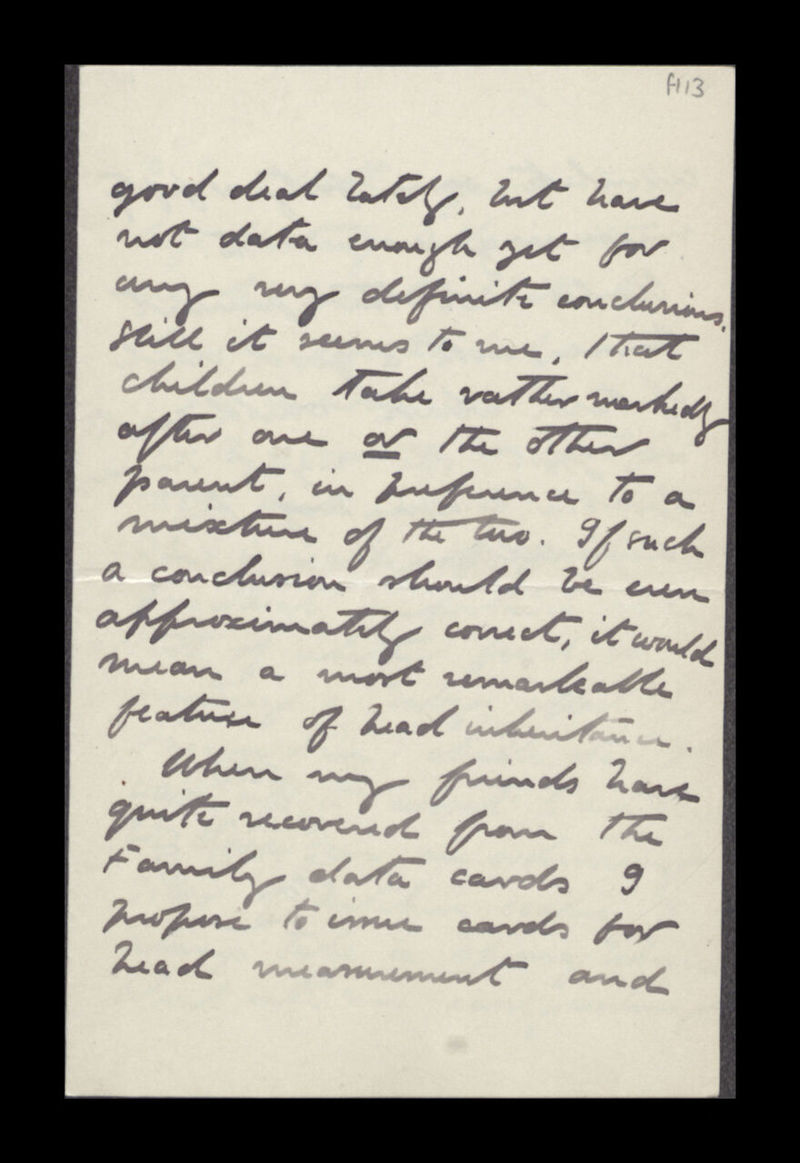 A113
good deal lately, but have
not data enough yet for
any very definite conclusions.
Still it seems to me, that
children take rather markedly
after one or the other
parent, in preference to a
mixture of the two. If such
a conclusion should be even
approximately correct, it would
mean a most remarkable
feature of head inheritance.
When my friends have
quite recovered from the
Family data cards I
propose to issue cards for
head measurement and